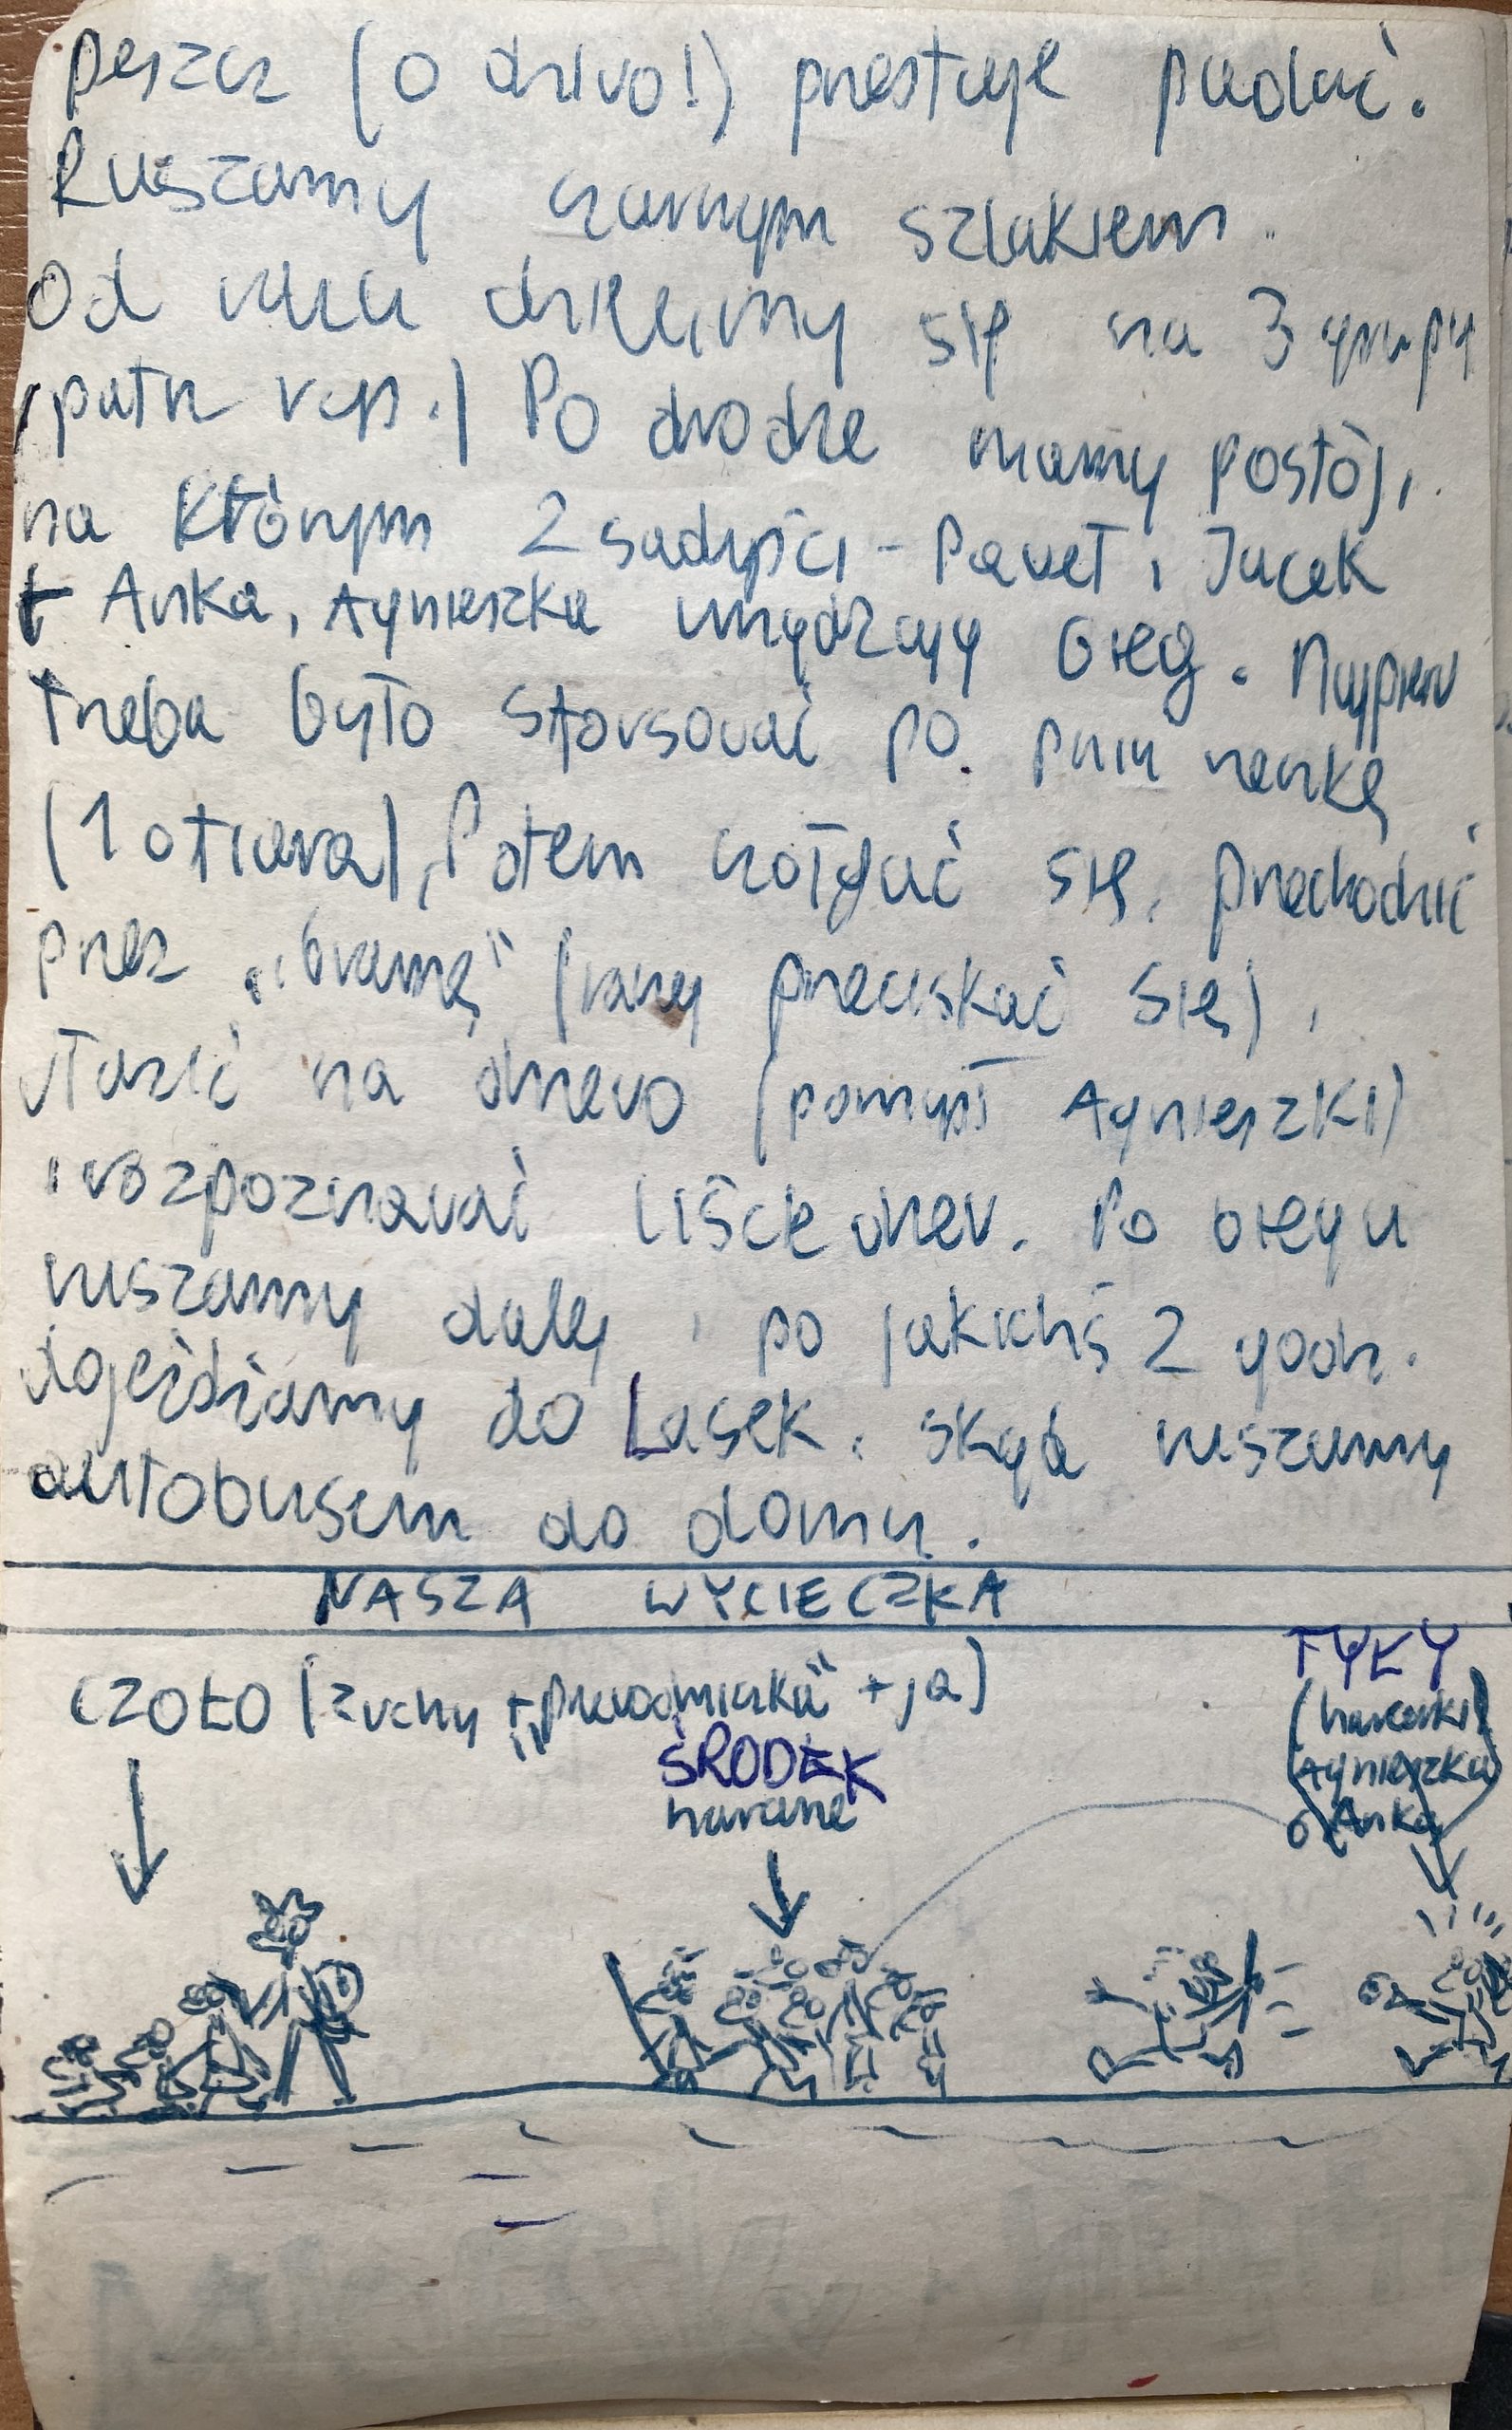 deszcz (o dziwo!) przestaje padać.
Ruszamy czarnym szlakiem.
Od razu dzielimy się na 3 grupy
(patrz rys.) Po drodze mamy postój,
na którym 2 sadyści - Paweł i Jacek
+ Anka, Agnieszka urządzają bieg. Najpierw
trzeba było sforsować po pniu rzeczkę
(1 ofiara), Potem czołgać się, przechodzić
przez „bramę" (raczej przeciskać się),
włazić na drzewo (pomysł Agnieszki)
i rozpoznawać liście drzew. Po biegu
ruszamy dalej i po jakichś 2 godz.
dojeżdżamy do Lasek, skąd ruszamy
autobusem do domu.
NASZA WYCIECZKA
CZOŁO (zuchy + „przewodniczka" + ja)
TYŁY
(harcerki)
Agnieszka
Anka
ŚRODEK
harcerze